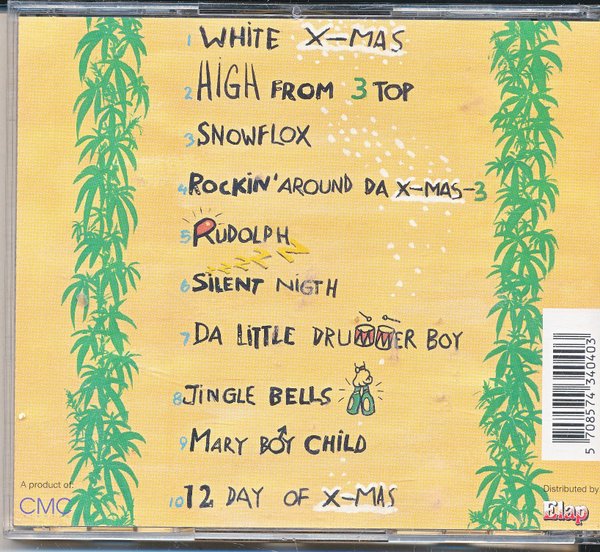 1 WHITE X-MAS
2 HIGH FROM 3 TOP
3 SNOWFLOX
4 ROCKIN' AROUND DA X-MAS-3
5 RUDOLPH
6 SILENT NIGTH
7 DA LITTLE DRUMMER BOY
8 JINGLE BELLS
9 MARY BOY CHILD
10 12 DAY OF X-MAS
A product of:
CMC
5 708574 340403
Distributed by
Elap